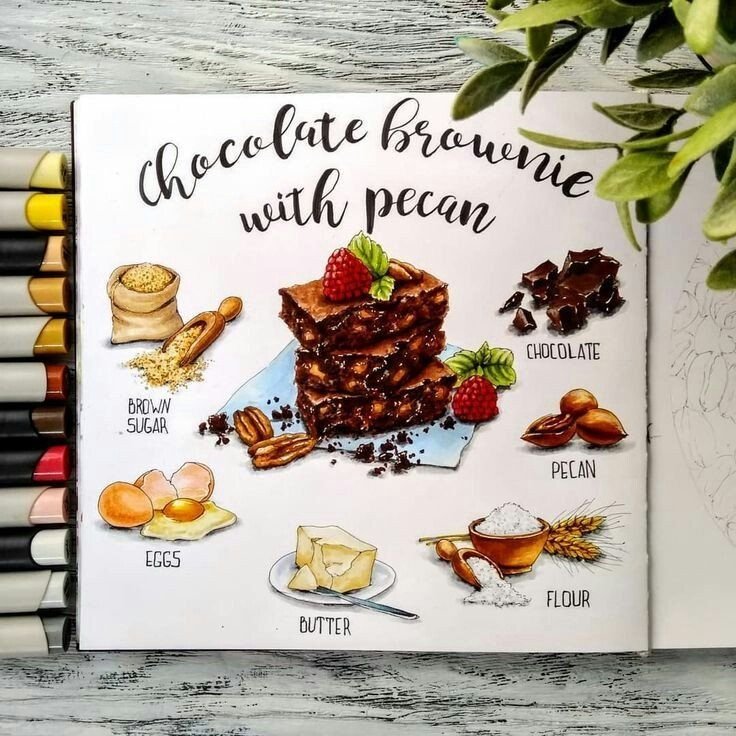 Chocolate brownie
with pecan
CHOCOLATE
BROWN
SUGAR
PECAN
EGGS
BUTTER
FLOUR